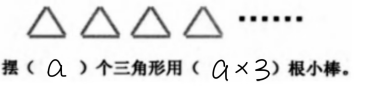 ……
摆（ a ）个三角形用（ a×3 ）根小棒。